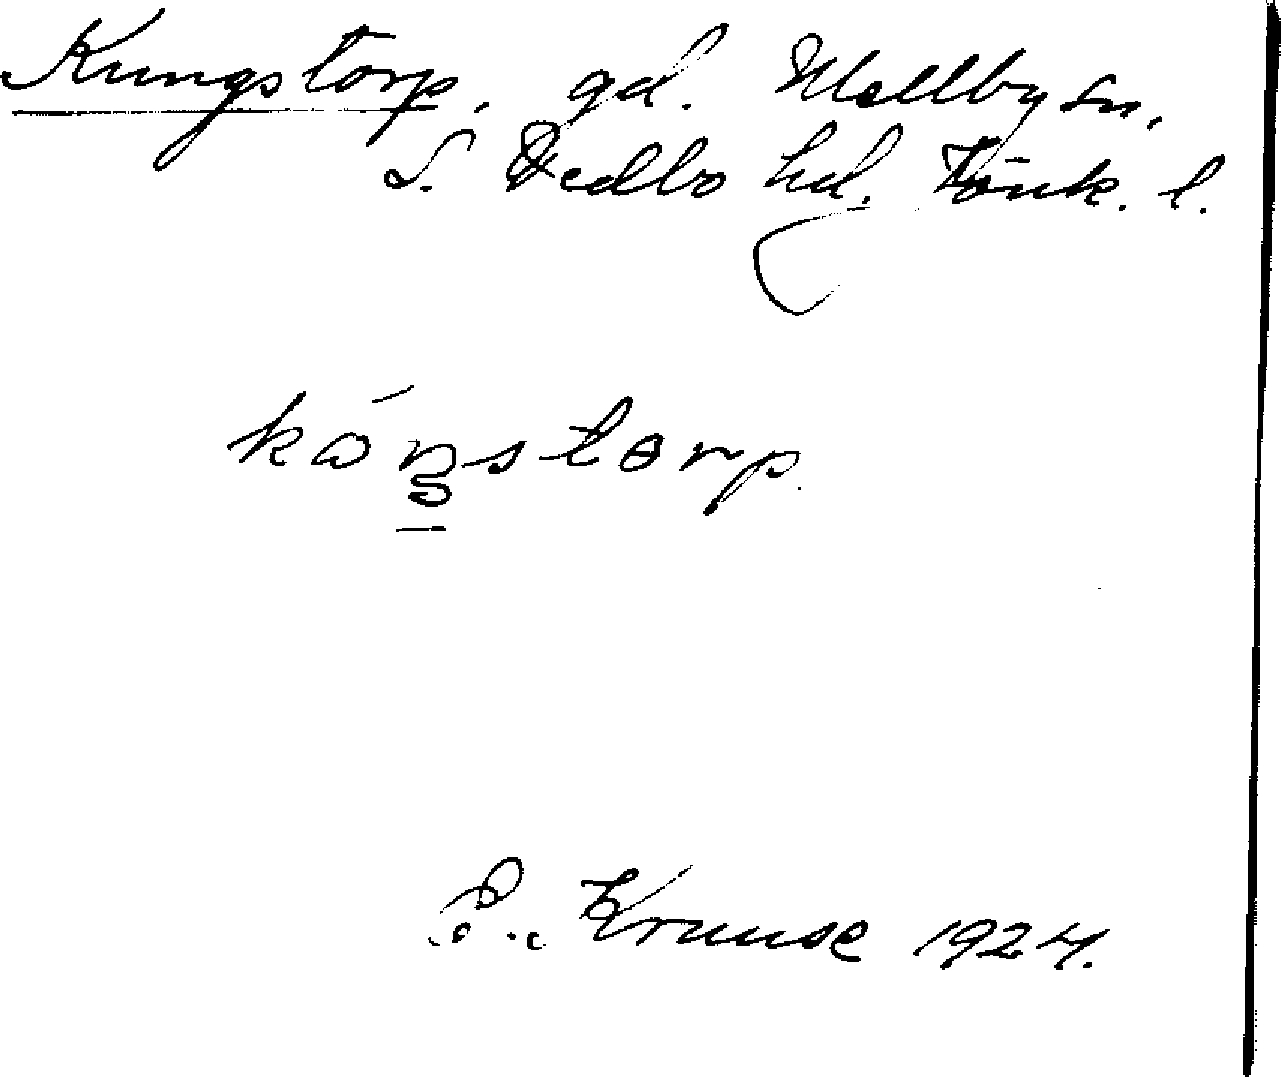 Kungstorp, gd. Mellby sn,
S. Vedbo hd. Jönk. l.
kóŋstorp.
E. Kruuse 1924.